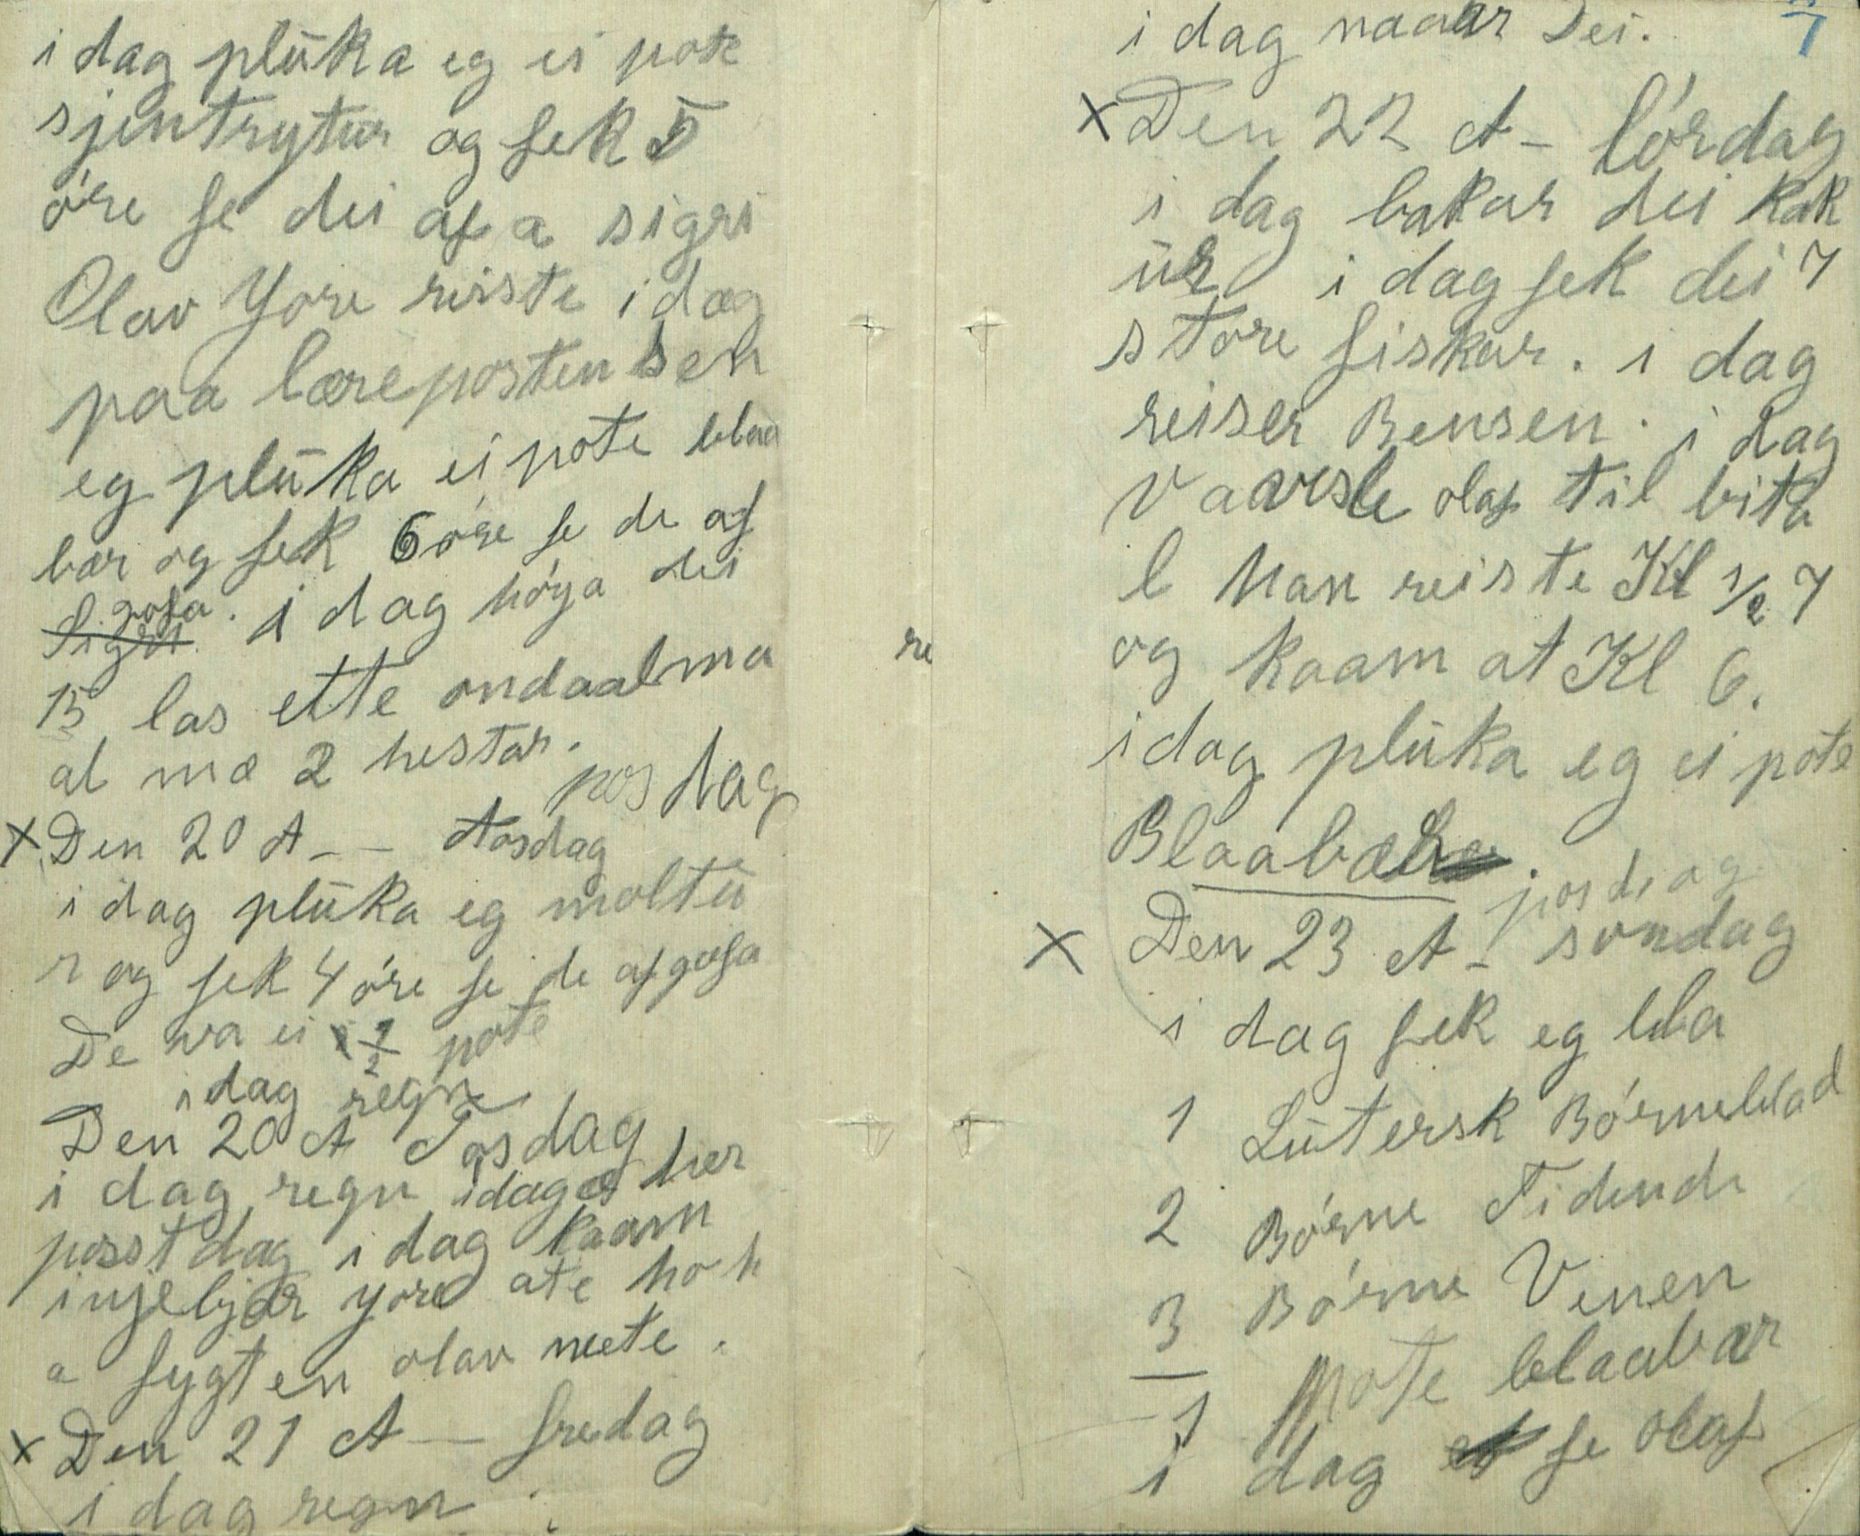 i dag plūka eg ei pote
sjentrytur og fek 5
øre fe dei af a sigri
Olav Yore reiste i dag
paa læreposten sen
eg plūka ei pote blaa
bær og fek 6 øre fe de af
gofa
Sigri. i dag høya dei
15 las ette ondaalma
al mæ 2 hestar.
posdag
x Den 20 A - - Tosdag
i dag plūka eg moltū
r og fek 4 øre fe de af gofa
De va ei 1/2 pote
i dag regn
Den 20 A Tosdag
i dag regn idag æ hær
posstdag i dag kaam
injeljør Yore ate ho h
a fygt en olav neete.
x Den 21 A — fredag
i dag regn
re
i dag naaar Dei.
x Den 22 A - lørdag
i dag bakar dei kak
ūr i dag fek dei 7
store fiskar. i dag
reiser Bensen. i dag
Vaarsle olaf til bita
l han reiste Kl 1/2 7
og kaam at Kl 6.
i dag plūka eg ei pote
Blaabær.
posdag
x Den 23 A - søndag
i dag fek eg bla
1 Lūtersk Børneblad
2 Børne Tidende
3 Børne Venen
1 pote blaabær
i dag fe olaf